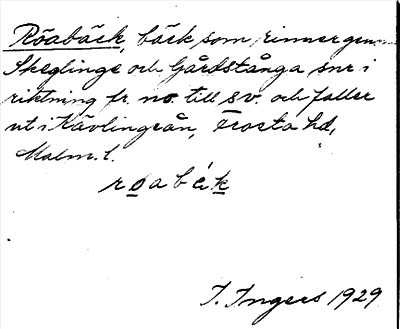 Röabäck, bäck som rinner genom
Skeglinge och Gårdstånga snr i
riktning fr. no. till sv. och faller
ut i Kävlingeån, Frosta hd,
Malm. l.
røabèk
I. Ingers 1929